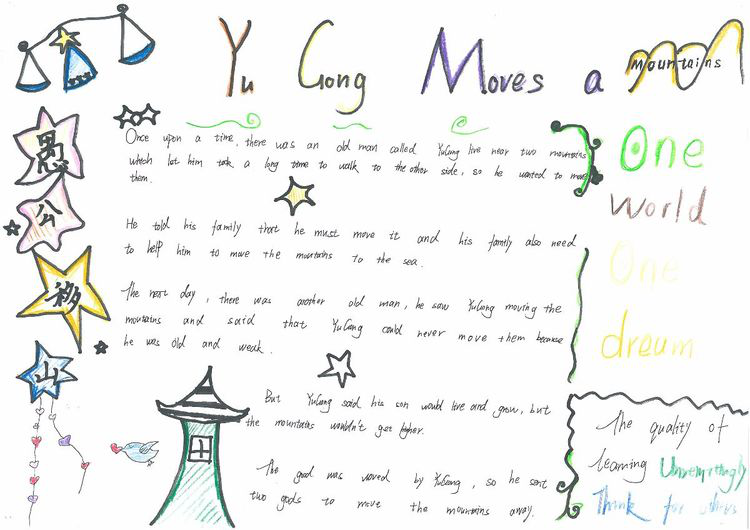 Yu Gong Moves a mountains
愚
公
移
山
Once upon a time, there was an old man called YuGong live near two mountains
which let him took a long time to walk to the other side, so he wanted to move
them.
He told his family that he must move it and his family also need
to help him to move the mountains to the sea.
The next day, there was another old man, he saw YuGong moving the
mountains and said that YuGong could never move them because
he was old and weak.
But YuGong said his son would live and grow, but
the mountains wouldn't get higher.
The good was moved by YuGong, so he sent
two gods to move the mountains away.
One
world
One
dream
The quality of
learning Unremittingly
Think for others